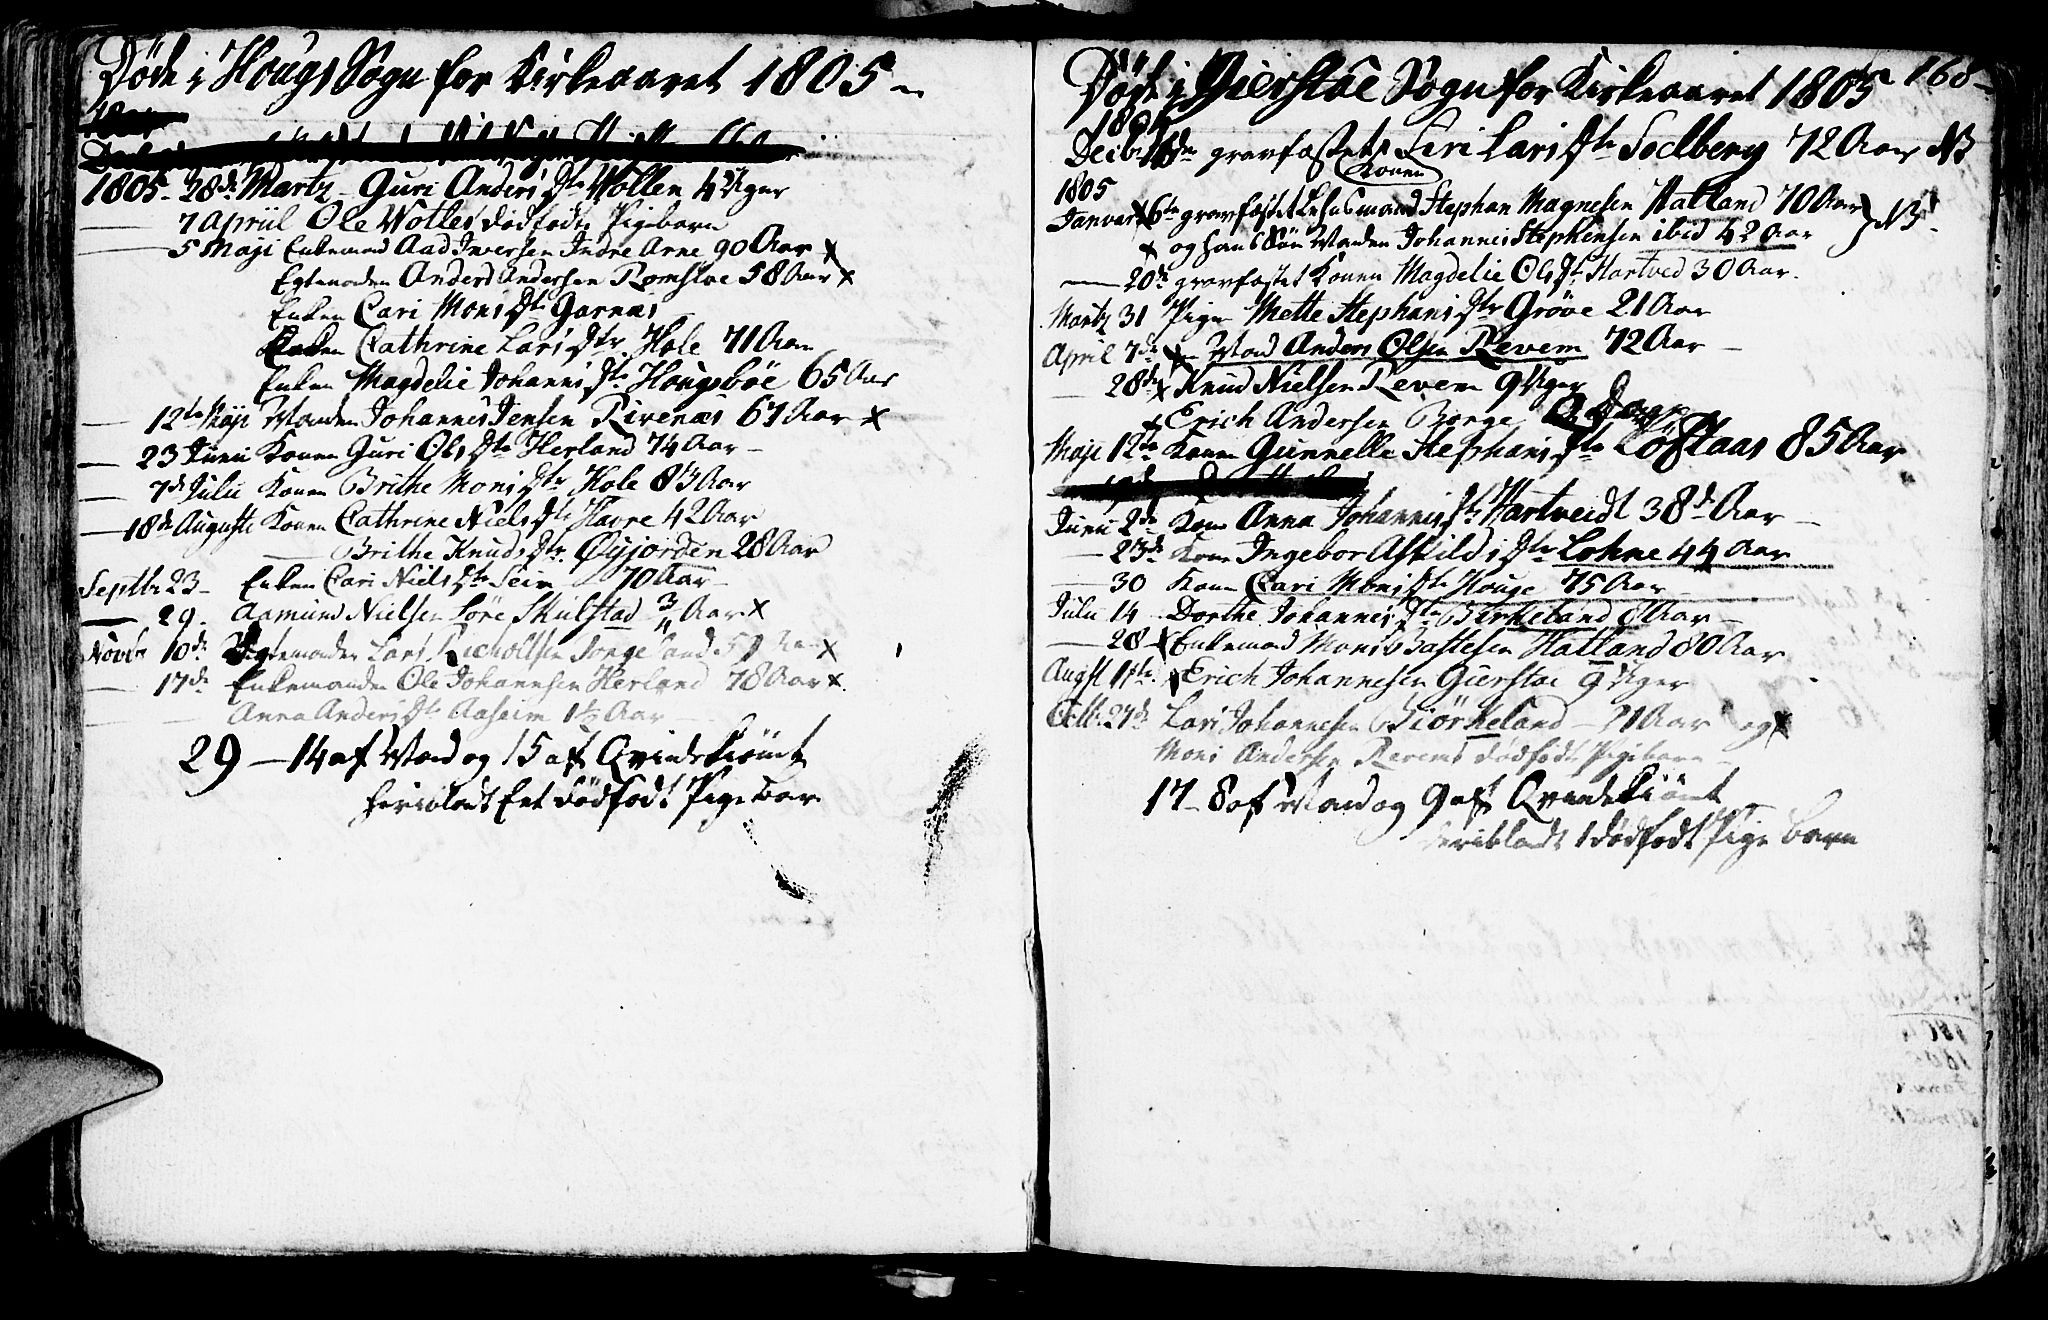 Døde i Hougs Sogn for Kirkeaaret 1805
1805 28de Martz Guri Anders Dtr Wollen 4 Uger
7 Apriil Ole Wolles dødfødte Pigebarn
5 Maji Enkemand Aad Iversen Indre Arne 90 Aar x
Egtemanden Anders Andersen Romsloe 58 Aar x
Enken Cari Mons Dtr Garnæs
Enken Cathrine Lars Dtr Hole 71 Aar
Enken Magdelie Johannis Dtr Hougsbøe 65 Aar
12te Maji Manden Johannes Jensen Rivenæs 67 Aar x
23 Junii Konen Guri Ols Dtr Herland 74 Aar
7de Julii Konen Brithe Mons Dtr Hole 83 Aar
18de Auguste Konen Cathrine Niels Dtr Havre 42 Aar
Brithe Knuds Dtr Øyjorden 28 Aar
Septbr 23 Enken Cari Niels Dtr Seim 70 Aar
29. Aamund Nielsen Løre Skulstad 3/4 Aar x
Novbr 10de Egtemanden Lars Songesand x
17de Enkemanden Ole Johannesen Herland 78 Aar x
Anna Anders Dtr Aaseim 1 1/2 Aar
29 – 14 af Mand og 15 af Qvindekiönt
heriblandt Eet dødfødt Pigebarn
168
Døde i Gierstøe Sogn for Kirkeaaret 1805
1804
Decbr gravfæstet Siri Lars Dtr Soelberg 72 Aar NB
Konen
1805
Januar 6te gravfæstet Lehnsmand Stephan Magnesen Hatland 70 Aar } NB
x og hans Søn Manden Johannes Stephensen ibid 42 Aar
20de gravfæstet Konen Magdelie Ols Dtr Hartved 30 Aar
Martz 31 Pige Mette Stephans Dtr Grøve 21 Aar
April 7de x Mand Anders Olsen Revem 72 Aar
28de x Knud Nielsen Revem 9 Uger
x Erich Andersen Borge 2 Dage
Maji 12te Konen Gunnelle Stephans Dtr Løstaas 85 Aar
Junii 2de Kone Anna Johannis Dtr Hartveidt 38de Aar
23de Kone Ingebor Askilds Dtr Lohne 44 Aar
30 Kone Cari Mons Dtr Houge 75 Aar
Julii 14 Dorthe Johannes Dtr Birkeland 8 Aar
28 x Enkemand Mons Bastesen Hatland 80 Aar
Augst Erich Johannesen Gierstøe 9 Uger
Octbr 27de Lars Johannesen Biörkeland 71 Aar x og
Mons Andersen Revems dødfødte Pigebarn
17 – 8 af Mand og 9 af Qvindekiönt
heriblandt 1 dødfødt Pige Barn